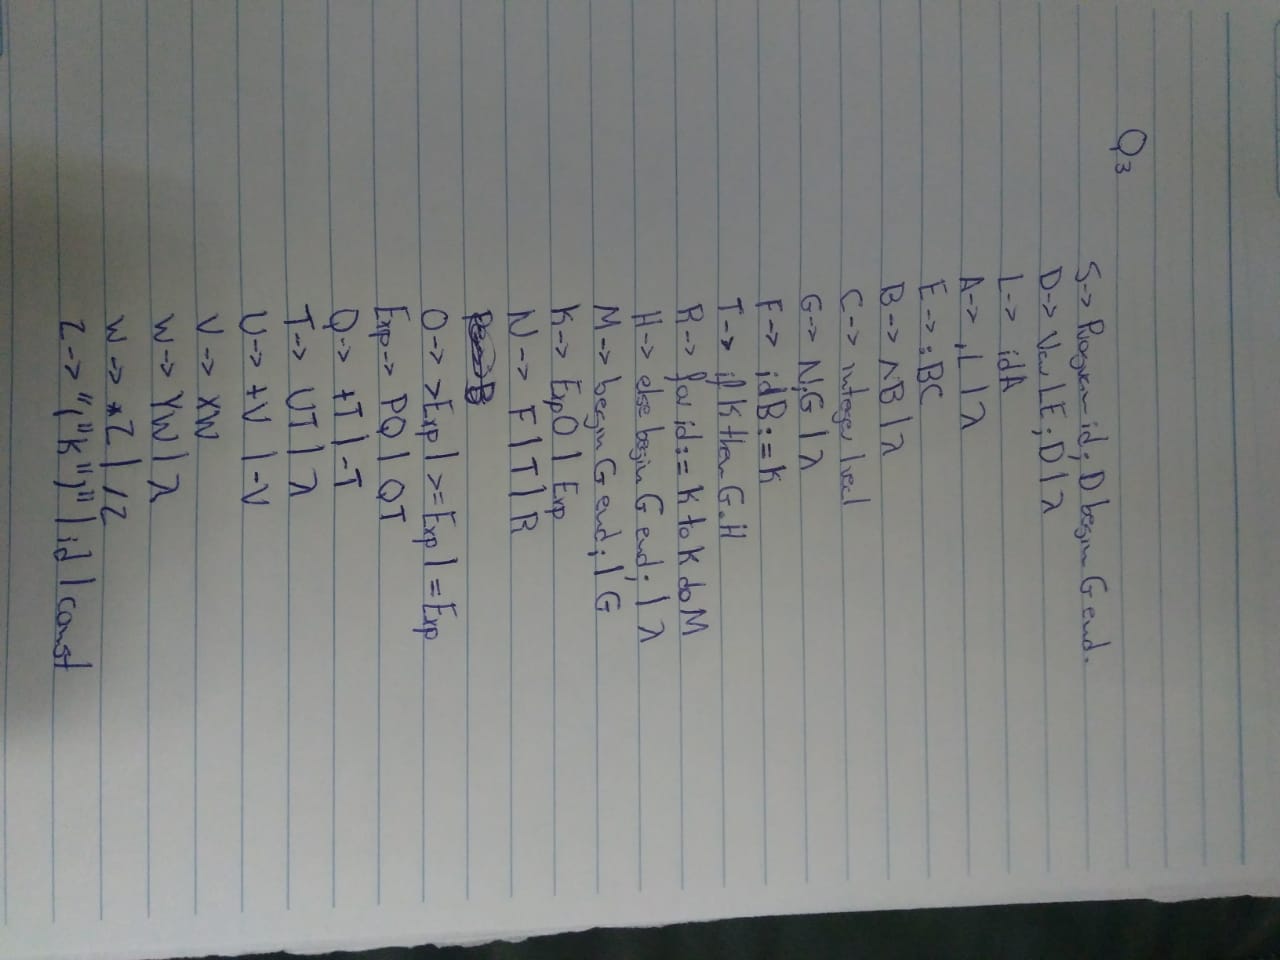 Q3
S-> Program id; D begin G end.
D-> Var LE; D | λ
L-> idA
A-> ,L | λ
E-> :BC
B-> ^B | λ
C-> integer | real
G-> N;G | λ
F-> idB:=K
T-> if K then G.H
R-> for id:= K to K do M
H-> else begin G end; | λ
M-> begin G end; | G
K-> ExpO | Exp
N-> F | T | R
O-> >Exp | >=Exp | =Exp
Exp-> PQ | QT
Q-> +T | -T
T-> UT | λ
U-> +V | -V
V-> XW
W-> YW | λ
W-> *Z | /Z
Z-> "("K")" | id | const